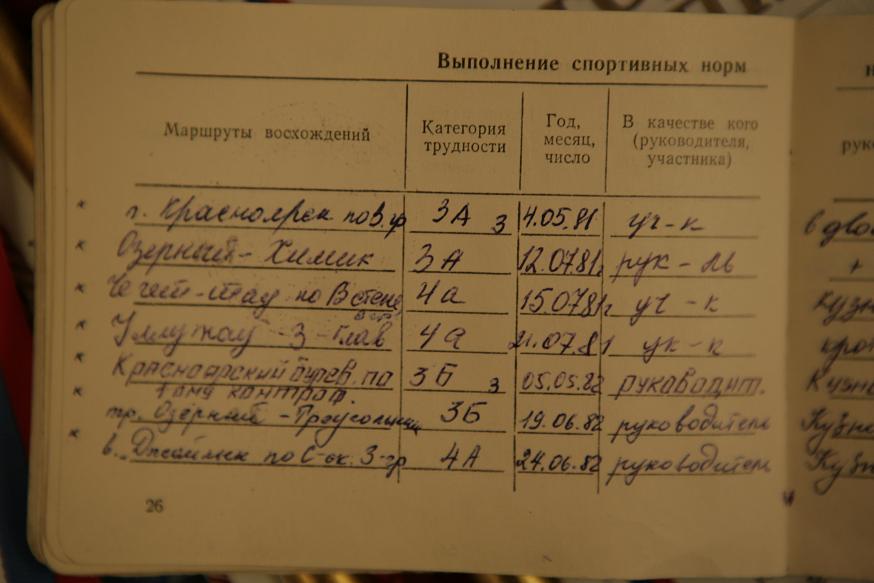 Выполнение спортивных норм
Маршруты восхождений
Категория трудности
Год, месяц, число
В качестве кого (руководителя, участника)
п. Красноярск по З. гр 3А з 4.05.81 уч-к
Озерный - Химик 3А 12.0781г рук - ль
Чегет-тау по В стене 4а 15.0781г уч - к
Уллукау - З - Глав 4а 21.07.81 ук-к
Красноярский по 3Б з 05.05.82 руководит.
1 ому контроф.
тр. Озёрный - Треугольник 3Б 19.06.82 руководитель
в. Джаймик по С-вк. З-гр 4А 24.06.82 руководитель
26
в дво
+
Кузн
кро
Кузн
Кузн
Кузн